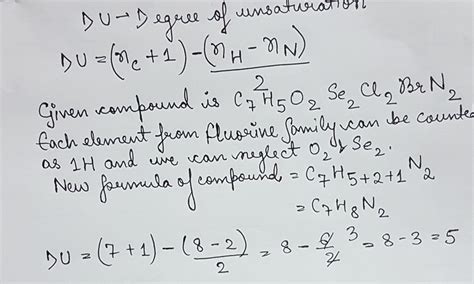 DU → Degree of unsaturation
DU = (n_C + 1) - (n_H - n_N) / 2
Given compound is C₇H₅O₂Se₂Cl₂BrN₂
Each element from fluorine family can be counte
as 1H and we can neglect O₂ & Se₂.
New formula of compound = C₇H₅₊₂₊₁N₂
= C₇H₈N₂
DU = (7+1) - (8-2) / 2 = 8 - 6/2 3 = 8 - 3 = 5